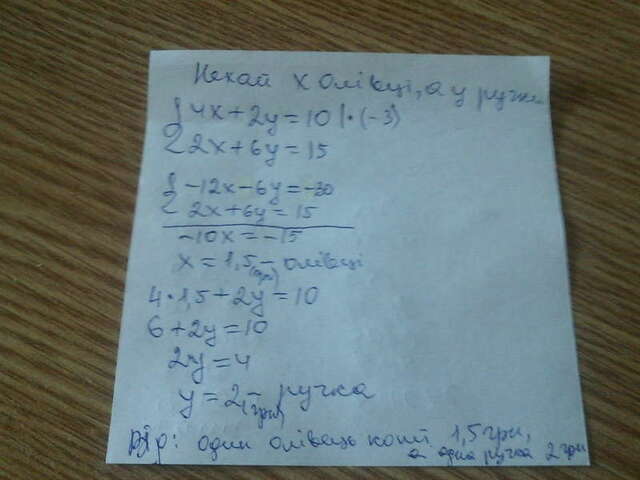 Нехай x олівці, а y ручки
{ 4x+2y=10 |·(-3)
2x+6y=15
{ -12x-6y=-30
2x+6y=15
-10x=-15
x=1,5 - олівці
(грн)
4·1,5+2y=10
6+2y=10
2y=4
y=2 - ручка
(грн)
Від: один олівець кошт. 1,5 грн,
а одна ручка 2 грн